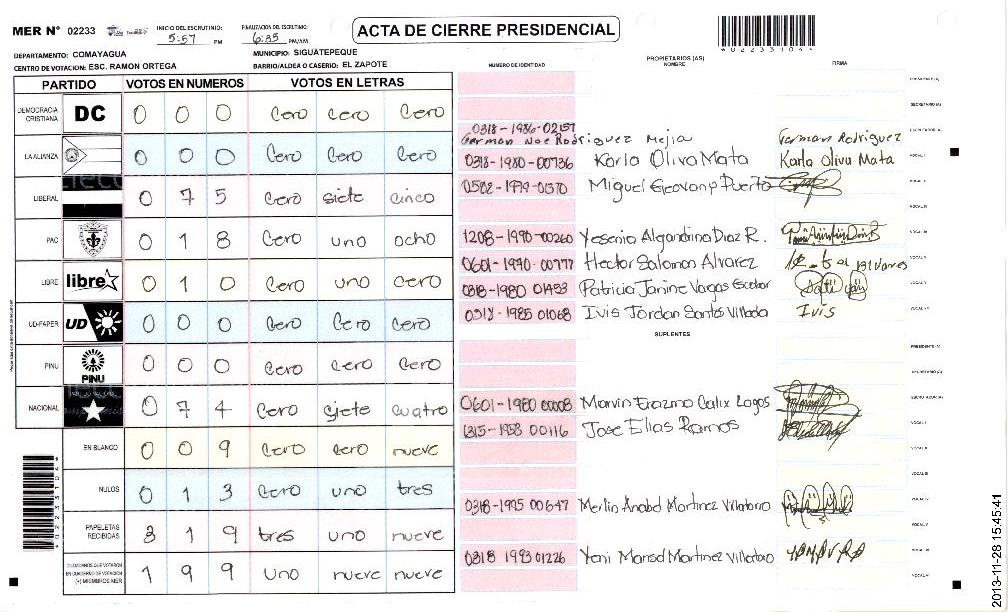 MER N° 02233
INICIO DEL ESCRUTINIO: 5:57 PM
FINALIZACION DEL ESCRUTINIO: 6:35 PM/AM
ACTA DE CIERRE PRESIDENCIAL
DEPARTAMENTO: COMAYAGUA
MUNICIPIO: SIGUATEPEQUE
CENTRO DE VOTACION: ESC. RAMON ORTEGA
BARRIO/ALDEA O CASERIO: EL ZAPOTE
PARTIDO VOTOS EN NUMEROS VOTOS EN LETRAS
DEMOCRACIA CRISTIANA DC 0 0 0 Cero Cero Cero
LA ALIANZA 0 0 0 Cero Cero Cero
LIBERAL 0 7 5 Cero siete cinco
PAC 0 1 8 Cero uno ocho
LIBRE libre 0 1 0 Cero uno Cero
UD-FAPER UD 0 0 0 Cero Cero Cero
PINU PINU 0 0 0 Cero Cero Cero
NACIONAL 0 7 4 Cero siete cuatro
EN BLANCO 0 0 9 Cero Cero nueve
NULOS 0 1 3 Cero uno tres
PAPELETAS RECIBIDAS 3 1 9 tres uno nueve
CIUDADANOS QUE VOTARON EN CUADERNO DE VOTACION (+) MIEMBROS MER 1 9 9 uno nueve nueve
PROPIETARIOS (AS)
NUMERO DE IDENTIDAD NOMBRE FIRMA
PRESIDENTE (A)
SECRETARIO (A)
0318-1986-02157 German Noe Rodriguez Mejia German Rodriguez ESCRUTADOR (A)
0318-1980-00736 Karla Oliva Mata Karla Oliva Mata VOCAL I
0502-1979-01370 Miguel Geovany Puerto VOCAL II
1208-1990-00260 Yesenia Algandina Diaz R.
0601-1970-00777 Hector Salomon Alvarez
0318-1980 01453 Patricia Janine Vargas Escobar
0318-1985 01068 Ivis Jordan Santos Villeda Ivis
SUPLENTES
PRESIDENTE (A)
SECRETARIO (A)
0601-1980 00008 Marvin Erazmo Calix Lagos ESCRUTADOR (A)
1315-1958 00116 Jose Elias Ramos VOCAL I
VOCAL II
VOCAL III
0318-1995 00647 Merlin Anabel Martinez Villatoro
0318 1993 01226 Yeni Marisol Martinez Villatoro
2013-11-28 15:45:41